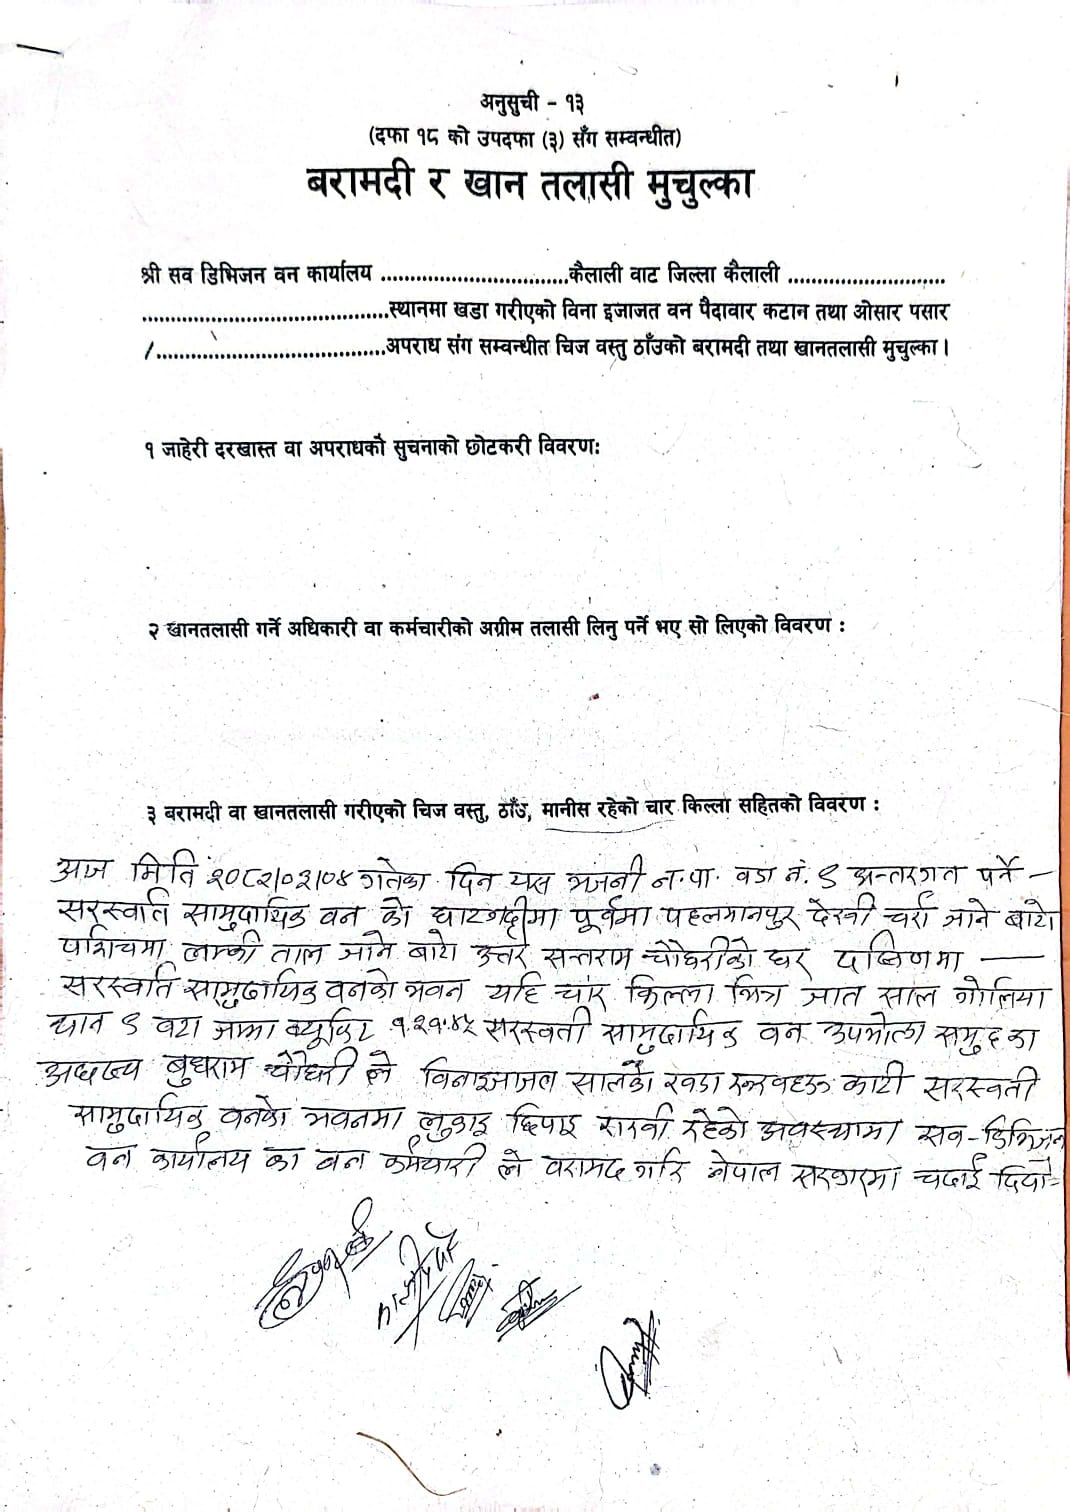 अनुसुची - १३
(दफा १८ को उपदफा (३) सँग सम्वन्धीत)
बरामदी र खान तलासी मुचुल्का
श्री सव डिभिजन वन कार्यालय ................................कैलाली वाट जिल्ला कैलाली ...........................
..........................................स्थानमा खडा गरीएको विना इजाजत वन पैदावार कटान तथा ओसार पसार
/.......................................अपराध संग सम्वन्धीत चिज वस्तु ठाँउको बरामदी तथा खानतलासी मुचुल्का।
१ जाहेरी दरखास्त वा अपराधकौ सुचनाको छोटकरी विवरण:
२ खानतलासी गर्ने अधिकारी वा कर्मचारीको अग्रीम तलासी लिनु पर्ने भए सो लिएको विवरण :
३ बरामदी वा खानतलासी गरीएको चिज वस्तु, ठाँउ, मानीस रहेको चार किल्ला सहितको विवरण :
आज मिति २०८२।०३।०४ गतेका दिन यस भजनी न.पा. वडा नं. ९ अन्तरगत पर्ने –
सरस्वति सामुदायिक वन को घाटगद्दीमा पूर्वमा पहलमानपुर देखी चर्रा जाने बाटो
पश्चिमा लाम्की ताल जाने बाटो उत्तर सन्तराम चौधरीको घर दक्षिणमा —
सरस्वति सामुदायिक वनको भवन यहि चार किल्ला भित्र जात साल गोलिया
थान ९ वटा जम्मा क्यूफिट सरस्वती सामुदायिक वन उपभोक्ता समुहका
अध्यक्ष बुधराम चौधरी ले विनाइजाजत सालको खडा रुखवहरु काटी सरस्वती
सामुदायिक वनको भवनमा लुकाइ छिपाइ राखी रहेको अवस्थामा सव-डिभिजन
वन कार्यालय का वन कर्मचारी ले बरामद गरि नेपाल सरकारमा चढाई दियौ